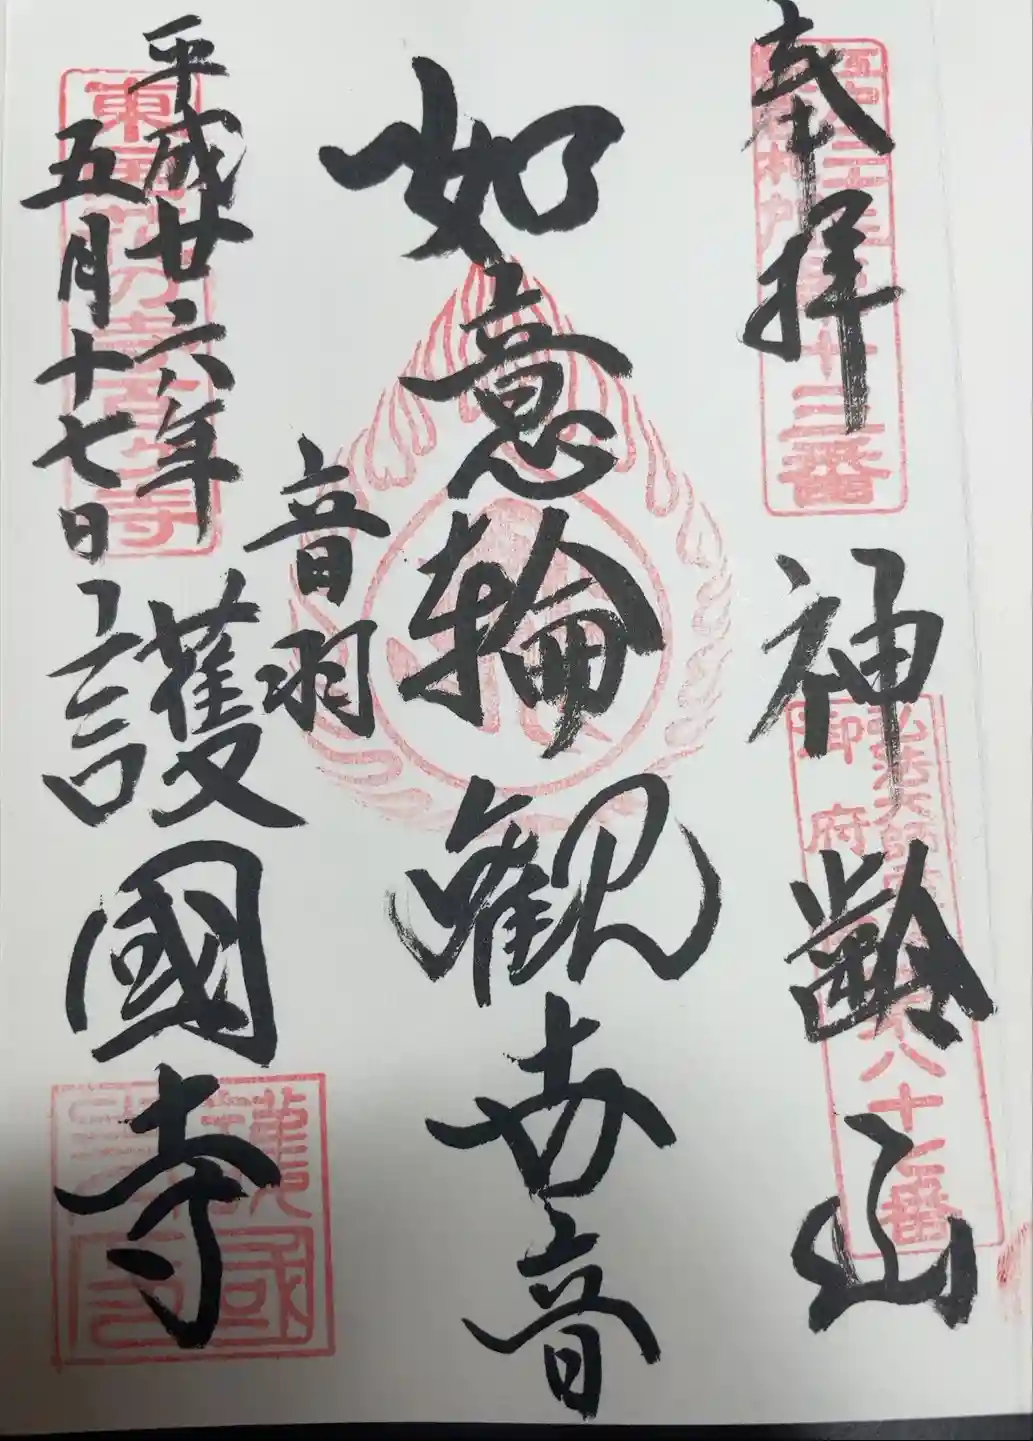 奉拝
神齢山
如意輪観世音
音羽
護國寺
平成廿六年
五月十七日
弘法大師
御府
八十七番
十三番
東